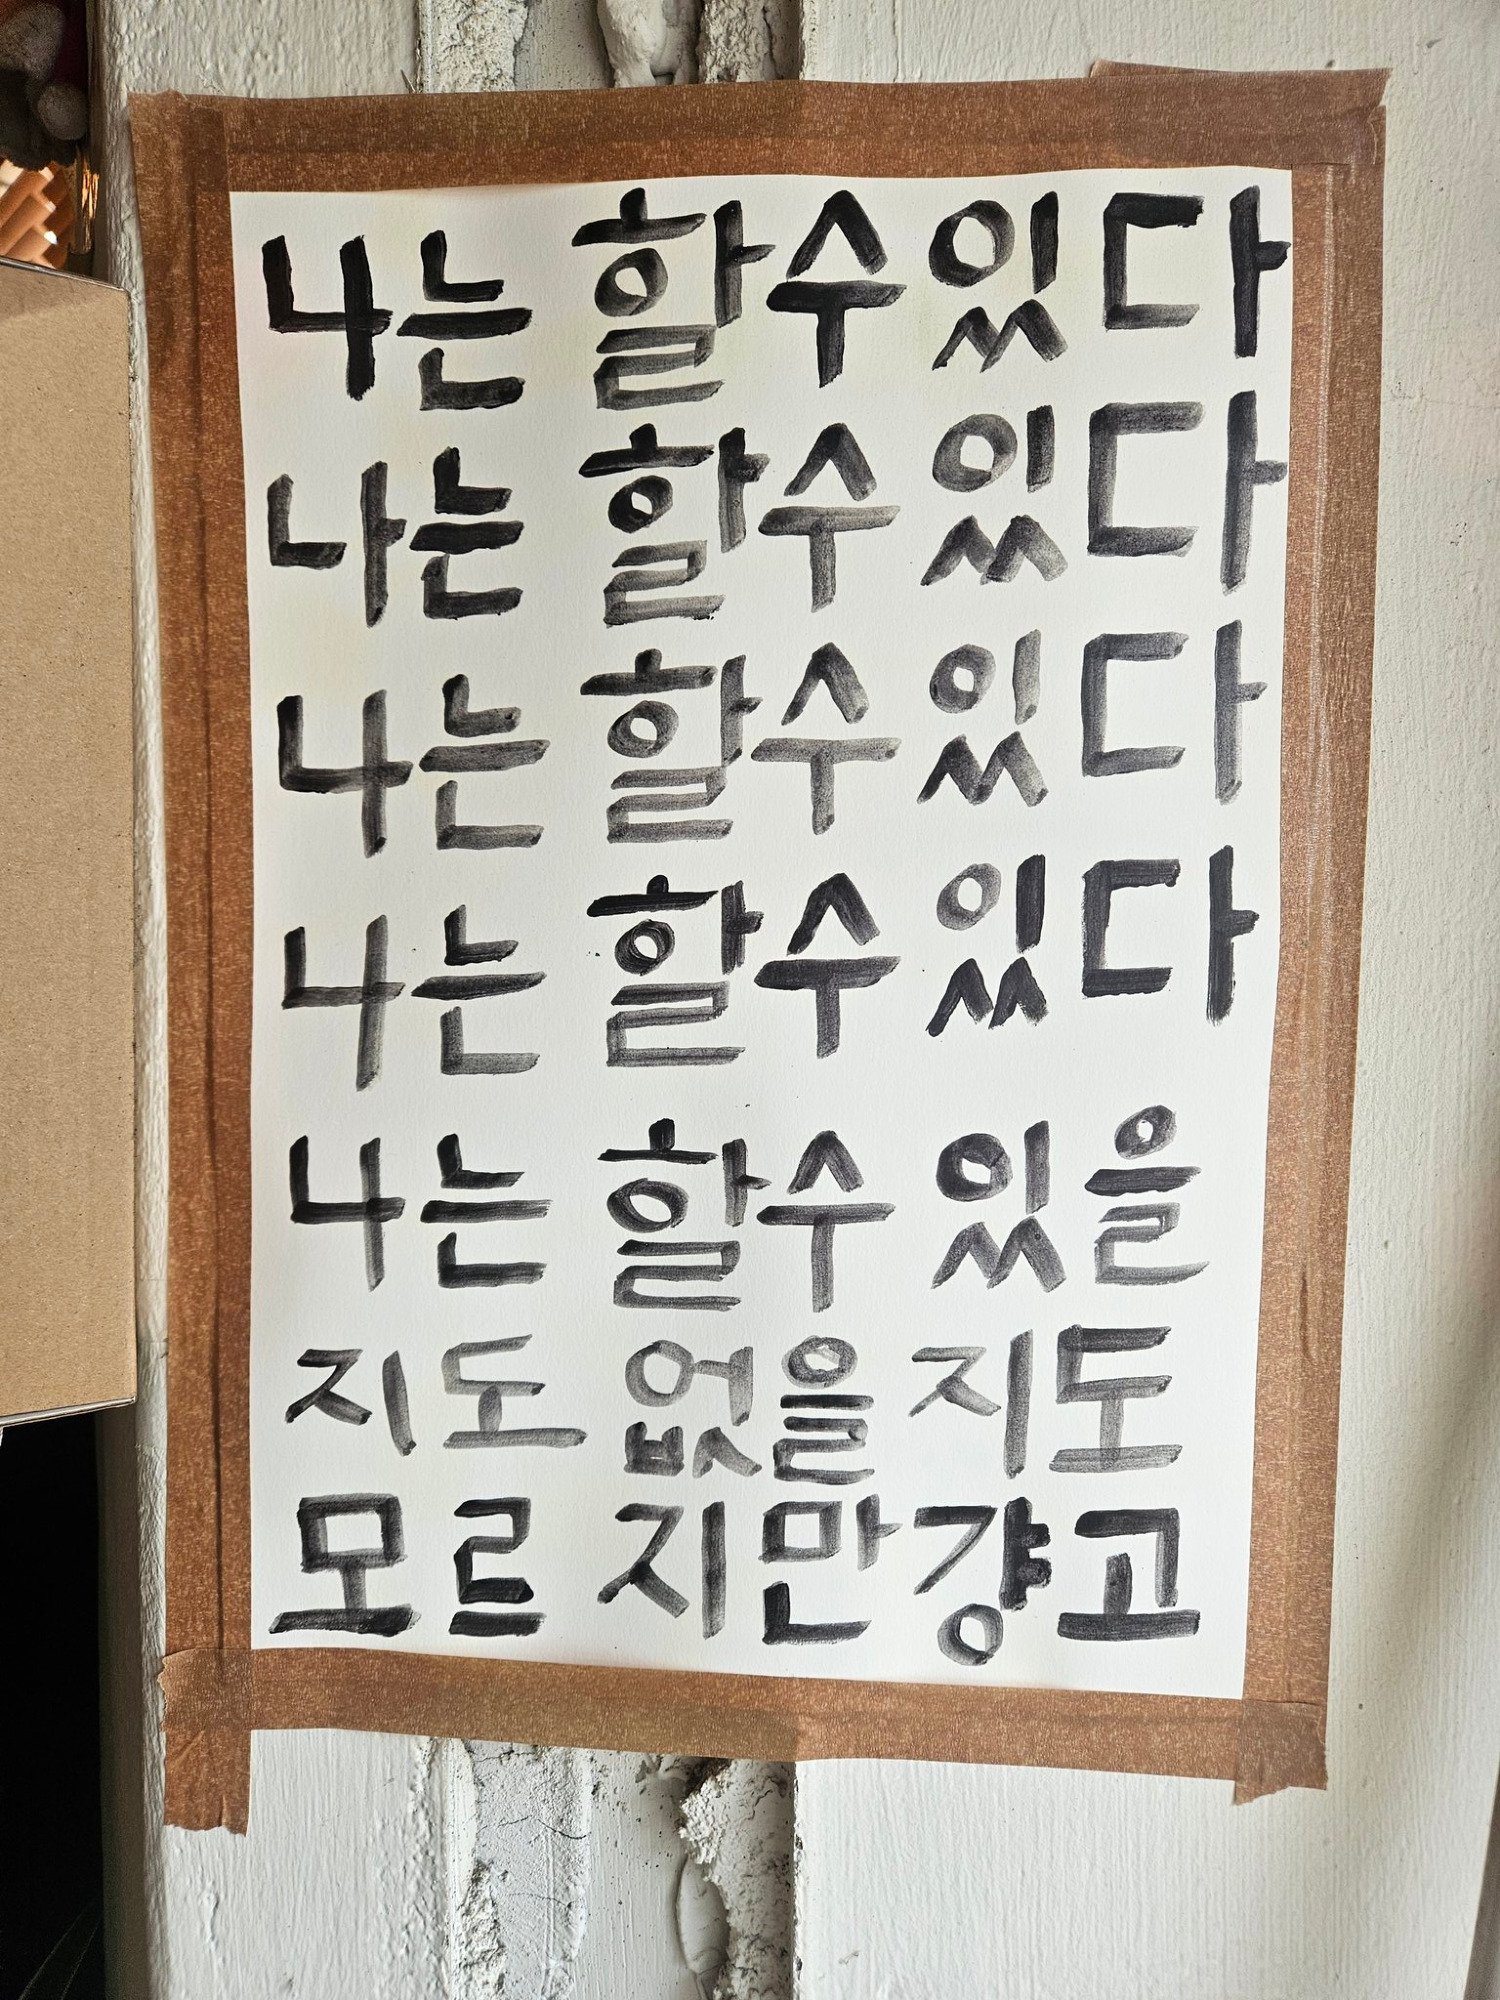 나는 할수있다
나는 할수있다
나는 할수있다
나는 할수있다
나는 할수있을
지도 없을지도
모르지만걍고